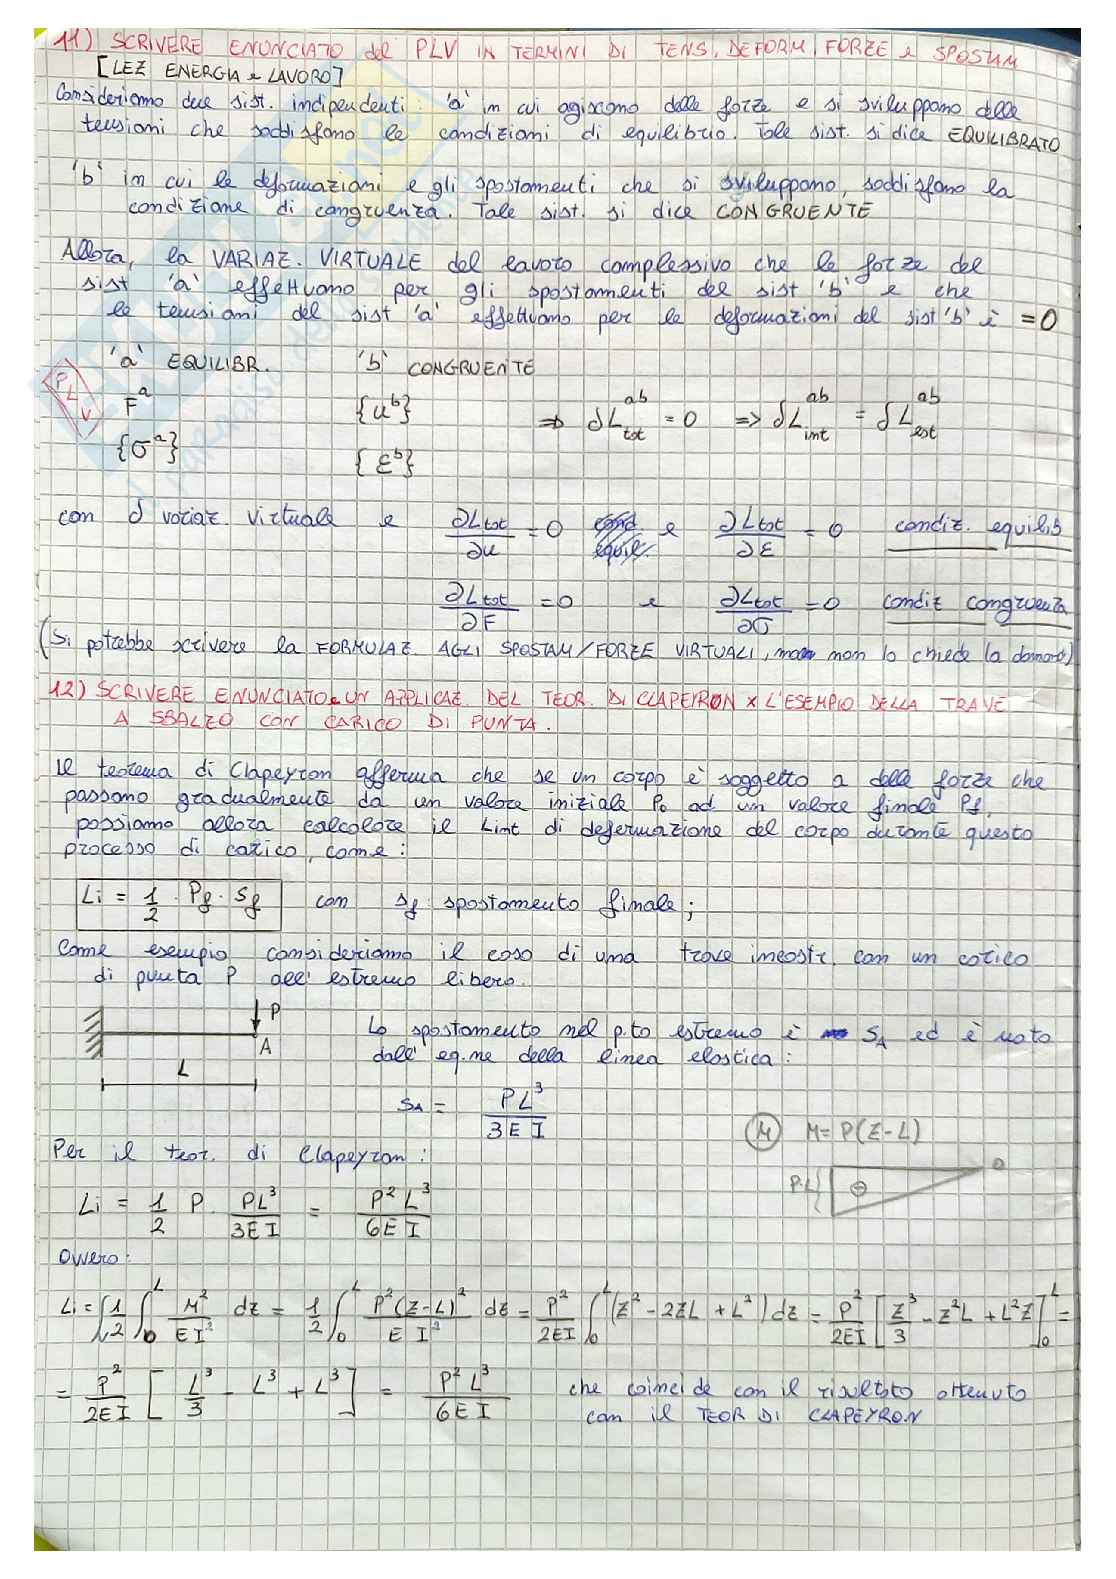 11) SCRIVERE ENUNCIATO del PLV IN TERMINI DI TENS, DEFORM, FORZE e SPOSTAM
[LEZ ENERGIA e LAVORO]
Consideriamo due sist. indipendenti: 'a' in cui agiscono delle forze e si sviluppano delle
tensioni che soddisfano le condizioni di equilibrio. Tale sist. si dice EQUILIBRATO
'b' in cui le deformazioni e gli spostamenti che si sviluppano, soddisfano la
condizione di congruenza. Tale sist. si dice CONGRUENTE
Allora, la VARIAZ. VIRTUALE del lavoro complessivo che le forze del
sist 'a' effettuano per gli spostamenti del sist 'b' e che
le tensioni del sist 'a' effettuano per le deformazioni del sist 'b' è = 0
'a' EQUILIBR. 'b' CONGRUENTE
PLV
F^a {u^b} => δL_tot^ab = 0 => δL_int^ab = δL_est^ab
{σ^a} {ε^b}
con δ variaz. virtuale e ∂Ltot/∂u = 0 e ∂Ltot/∂ε = 0 condiz. equilib
∂Ltot/∂F = 0 e ∂Ltot/∂σ = 0 condiz congruenza
(Si potrebbe scrivere la FORMULAZ. AGLI SPOSTAM/FORZE VIRTUALI, ma non lo chiede la domanda)
12) SCRIVERE ENUNCIATO e UN APPLICAZ. DEL TEOR. DI CLAPEYRON x L'ESEMPIO DELLA TRAVE
A SBALZO CON CARICO DI PUNTA.
Il teorema di Clapeyron afferma che se un corpo è soggetto a delle forze che
passano gradualmente da un valore iniziale P₀ ad un valore finale Pf,
possiamo allora calcolare il Lint di deformazione del corpo durante questo
processo di carico, come:
Li = 1/2 · Pf · Sf con sf spostamento finale;
Come esempio consideriamo il caso di una trave incastr. con un carico
di punta P all'estremo libero.
P
A
L
Lo spostamento nel p.to estremo è SA ed è noto
dall'eq.ne della linea elastica:
SA = PL³/3EI
(M) M = P(Z-L)
P·L ⊖ 0
Per il teor. di Clapeyron:
Li = 1/2 P · PL³/3EI = P²L³/6EI
Ovvero:
Li = 1/2 ∫₀^L M²/EI² dz = 1/2 ∫₀^L P²(Z-L)²/EI² dz = P²/2EI ∫₀^L (z² - 2ZL + L²) dz = P²/2EI [z³/3 - z²L + L²Z]₀^L =
= P²/2EI [L³/3 - L³ + L³] = P²L³/6EI che coincide con il risultato ottenuto
con il TEOR DI CLAPEYRON